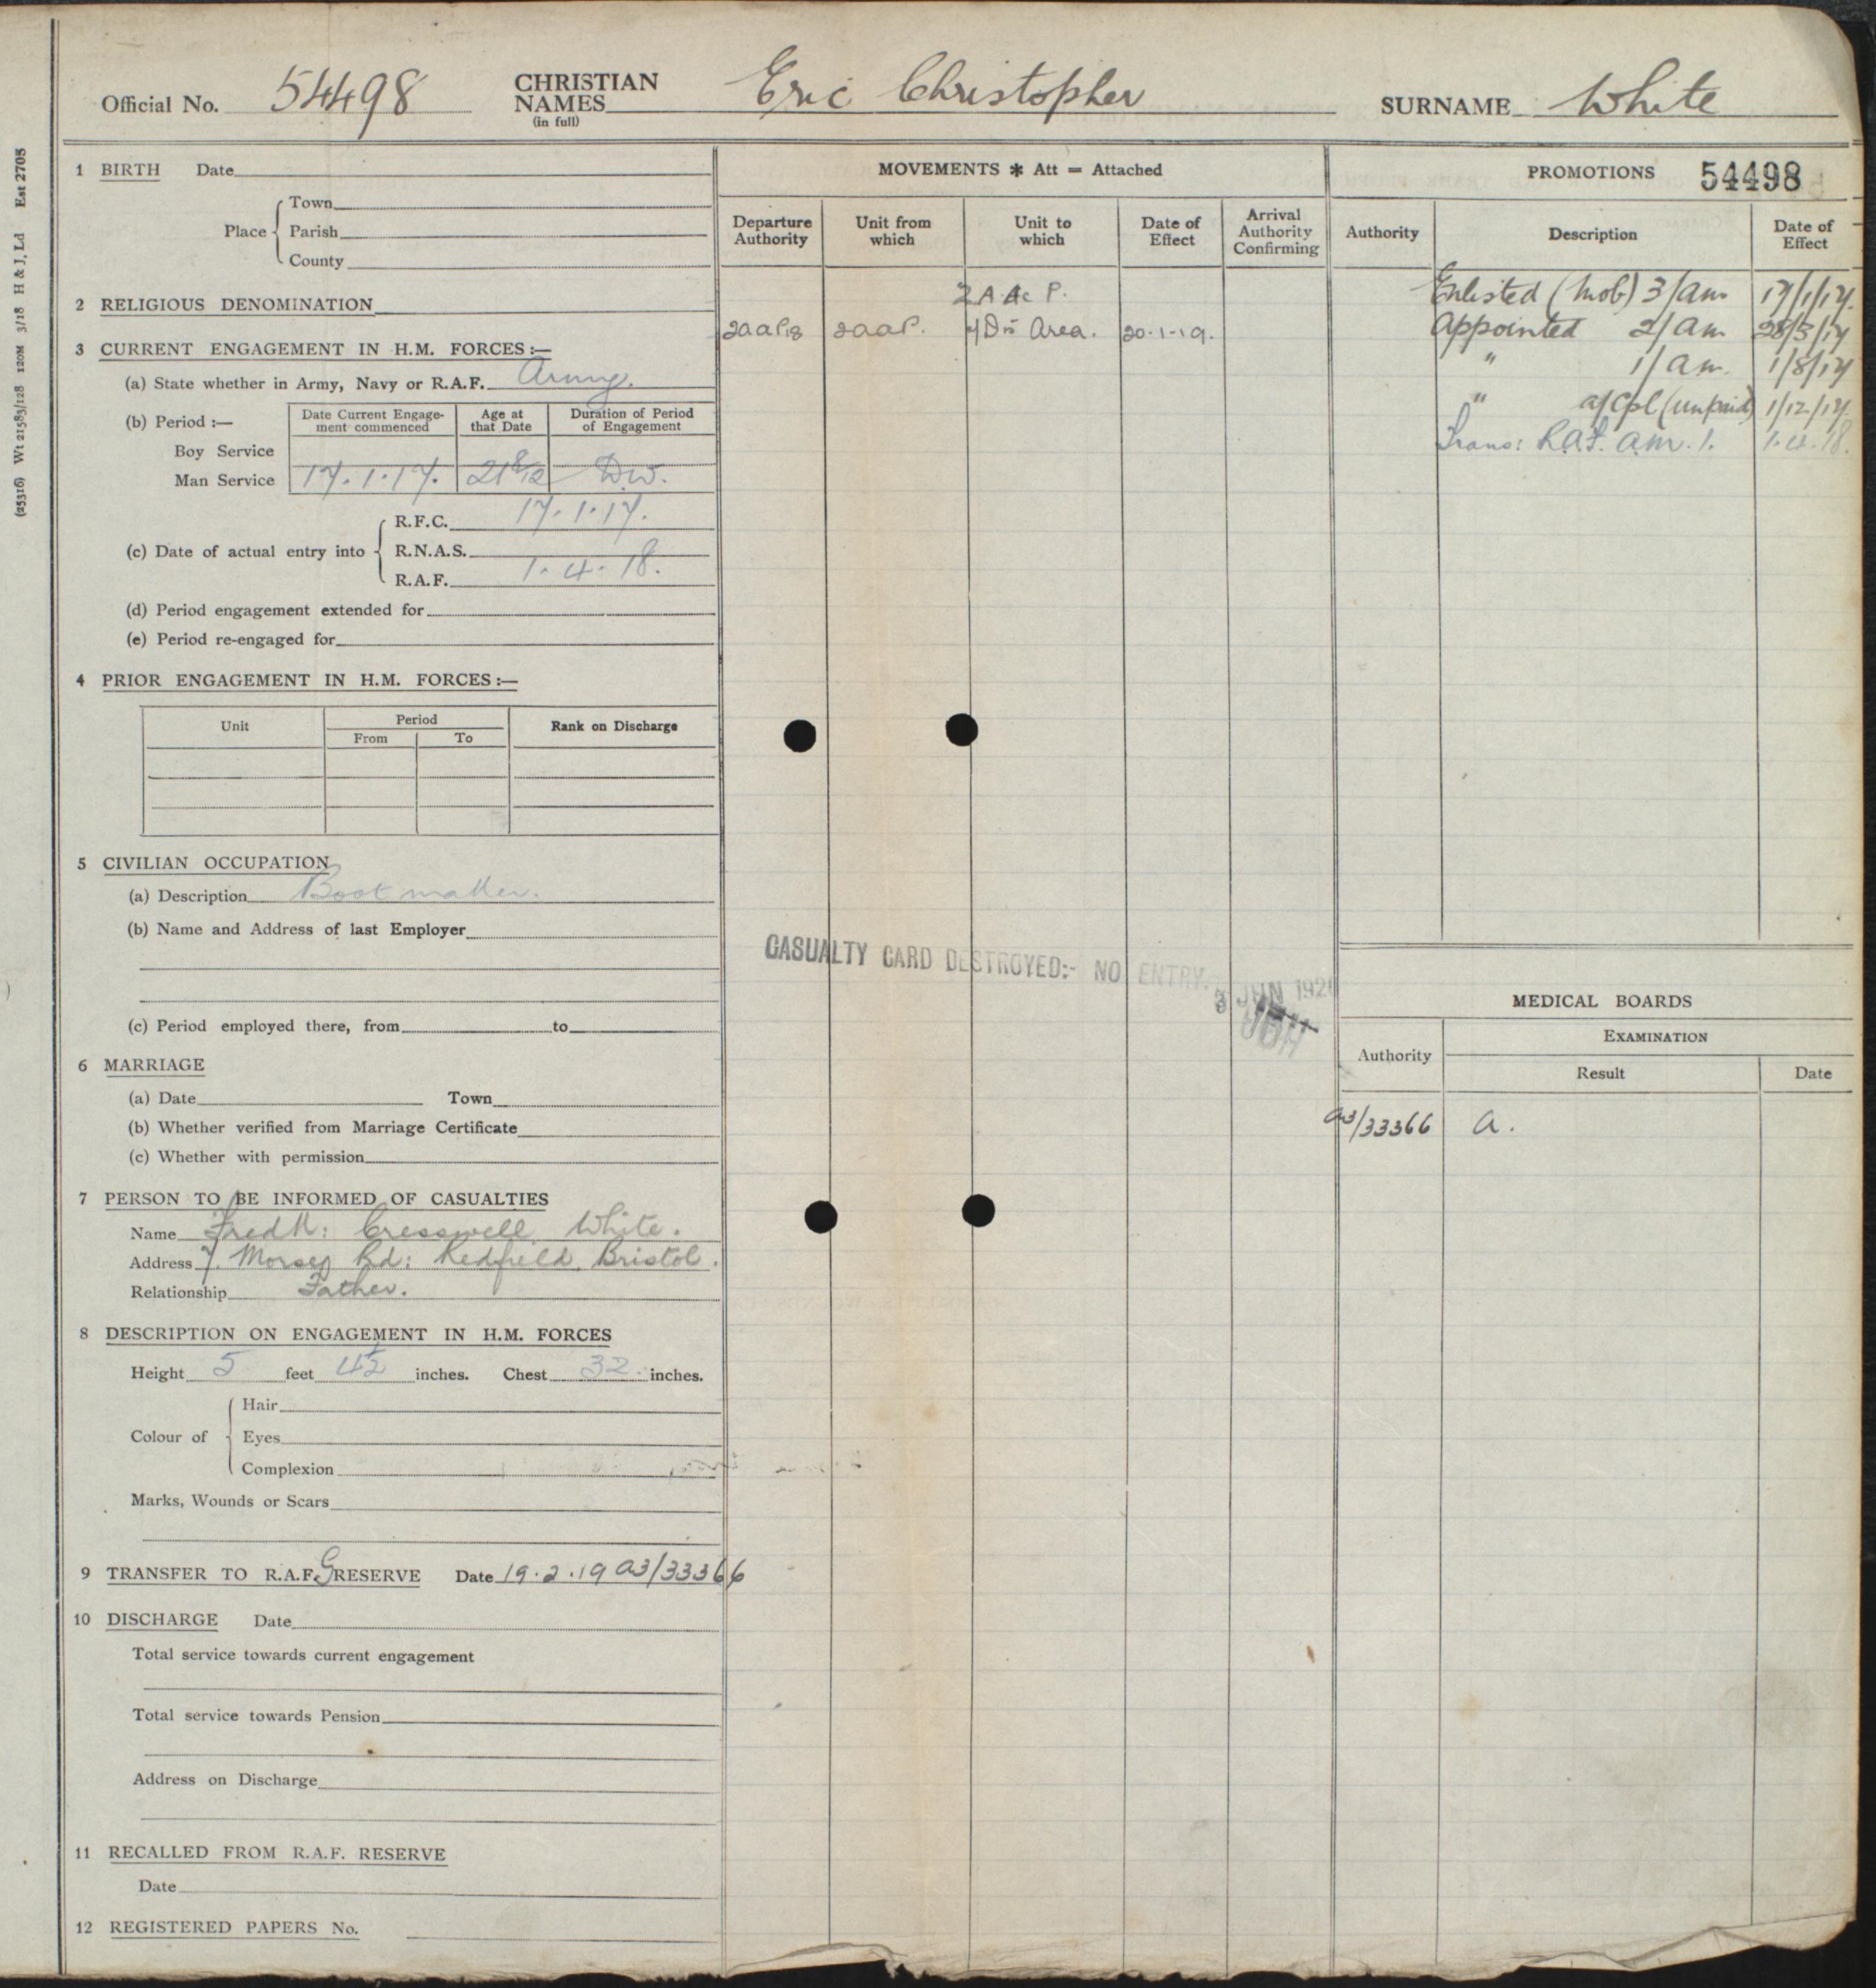 Official No. 54498 CHRISTIAN NAMES (in full) Eric Christopher SURNAME White
(25316) Wt 21583/128 120M 3/18 H & J, Ld Est 2705
1 BIRTH Date
Place
Town
Parish
County
2 RELIGIOUS DENOMINATION
3 CURRENT ENGAGEMENT IN H.M. FORCES :—
(a) State whether in Army, Navy or R.A.F. Army.
(b) Period :—
Date Current Engagement commenced Age at that Date Duration of Period of Engagement
Boy Service
Man Service 17.1.17. 21 8/12 D.W.
(c) Date of actual entry into
R.F.C. 17.1.17.
R.N.A.S.
R.A.F. 1.4.18.
(d) Period engagement extended for
(e) Period re-engaged for
4 PRIOR ENGAGEMENT IN H.M. FORCES :—
Unit Period Rank on Discharge
From To
5 CIVILIAN OCCUPATION
(a) Description Bootmaker.
(b) Name and Address of last Employer
(c) Period employed there, from to
6 MARRIAGE
(a) Date Town
(b) Whether verified from Marriage Certificate
(c) Whether with permission
7 PERSON TO BE INFORMED OF CASUALTIES
Name Fredk: Cresswell White.
Address 7. Morsey Rd: Redfield, Bristol.
Relationship Father.
8 DESCRIPTION ON ENGAGEMENT IN H.M. FORCES
Height 5 feet 4½ inches. Chest 32. inches.
Colour of
Hair
Eyes
Complexion
Marks, Wounds or Scars
9 TRANSFER TO R.A.F. G RESERVE Date 19.2.19 A3/33366
10 DISCHARGE Date
Total service towards current engagement
Total service towards Pension
Address on Discharge
11 RECALLED FROM R.A.F. RESERVE
Date
12 REGISTERED PAPERS No.
MOVEMENTS * Att = Attached
Departure Authority Unit from which Unit to which Date of Effect Arrival Authority Confirming
2 A Ac P.
2aaP. Area. 20-1-19.
CASUALTY CARD DESTROYED:- NO ENTRY.
3 JUN 192
PROMOTIONS 54498
Authority Description Date of Effect
Enlisted (Mob) 3/am 17/1/17.
Appointed 2/am 28/3/17
" 1/am. 1/8/17
" a/Cpl (unpaid) 1/12/17.
Trans: R.A.F. a.m. 1. 1.4.18.
MEDICAL BOARDS
Authority EXAMINATION
Result Date
A3/33366 A.